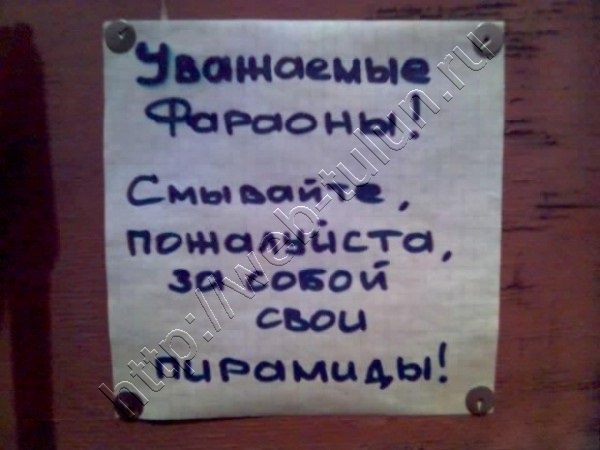 Уважаемые
Фараоны!
Смывайте,
пожалуйста,
за собой
свои
пирамиды!
http://web-tulun.ru